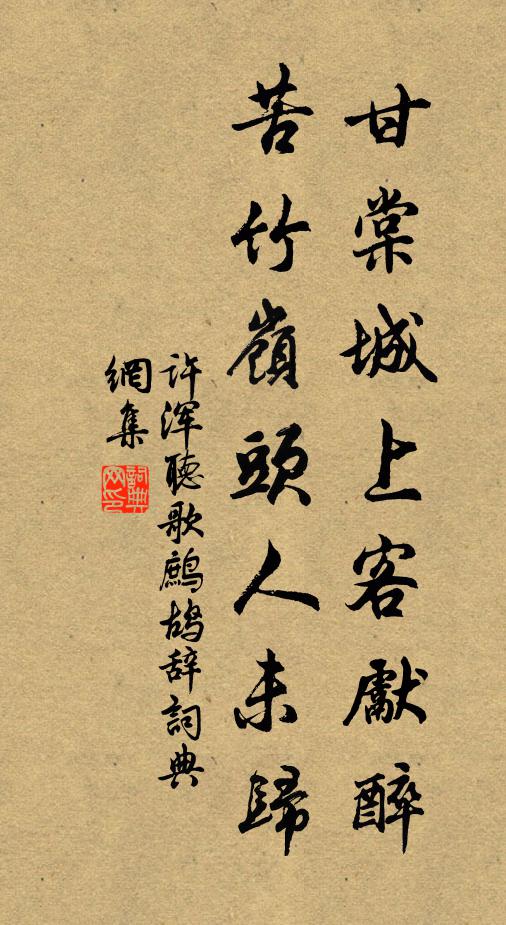 甘棠城上客獻醉
苦竹嶺頭人未歸
許渾聽歌鷓鴣辭詞典
網集
詞典
网印